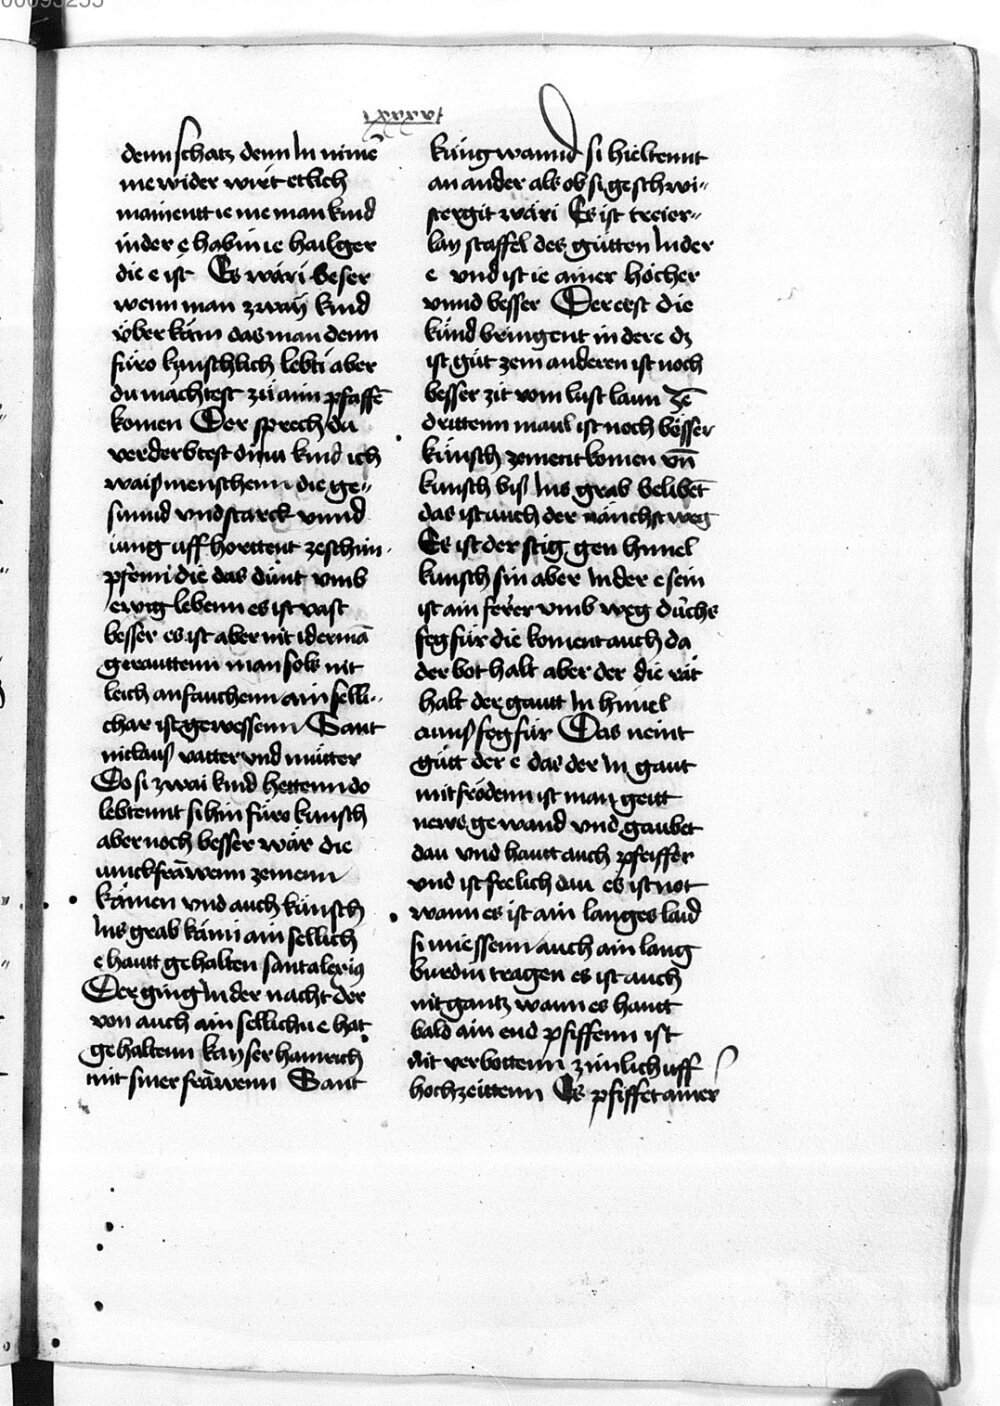 lxxxxvi
denn schatz denn In nimē
me wider wirt etlich
mainentt ie me man kind
in der e hab in ie hailger
die e ist Es wäri beser
wenn man zwaÿ kind
über käm das man denn
fúro kúnschlich lebti aber
du machtest zú aim pfaffē
komen Der sprech du
verderbtest dinn kind ich
waiß menschenn die ge〃
sunnd vnd starck vnnd
iung uff horttent ze schim
pfenn die das dúnt vmb
ewig lebenn es ist vast
besser es ist aber nit idermā
gerauttenn man solß nit
leich anfauchenn ain selli〃
char ist gewessenn Sant
niclauß vatter vnd mútter
Do si zwai kind hettenn do
lebtennt si hin fúro kunsch
aber noch besser wär die
iunckfrāwenn zemenn
kämen vnd auch kúnsch
Ins grab kämi ain sellich
e hautt gehalten sant alexius
Der ging In der nacht der
von auch ain sellichu e hat
gehaltenn kaÿser hainrich
mit siner frāwenn Sant
kúng wannd si hieltennt
an ander alß ob si geschwi〃
stergit wäri Es ist treier〃
laÿ staffel des gútten In der
e vnd ist ie ainer höcher
vnnd besser Der erst die
kúnd bringent in der e dz
ist gút zem anderen ist noch
besser zit vom lust laun Zē
drittenn maul ist noch besser
kúnsch zement komen vn̄
kunsch biß Ins grab belibēt
das ist auch der nänchst weg
Es ist der stig gen himel
kunsch sin aber In der e sein
ist ain ferer vmb weg dúchs
fegfúr die koment auch da
der bot halt aber der die rät
halt der gautt In himel
aunß fegfúr Das neint
gútt der e das der In gaut
mit frödenn ist man geitt
news gewand vnd gaubet
dau vnd hautt auch pfeiffer
vnd ist frelich dau es ist not
wann es ist ain langes laid
si miessenn auch ain lang
burdin tragen es ist auch
nit gantz wann es hautt
bald ain end pfiffenn ist
nit verbottenn zimlich uff
hochzeittenn Es pfiffet ainer